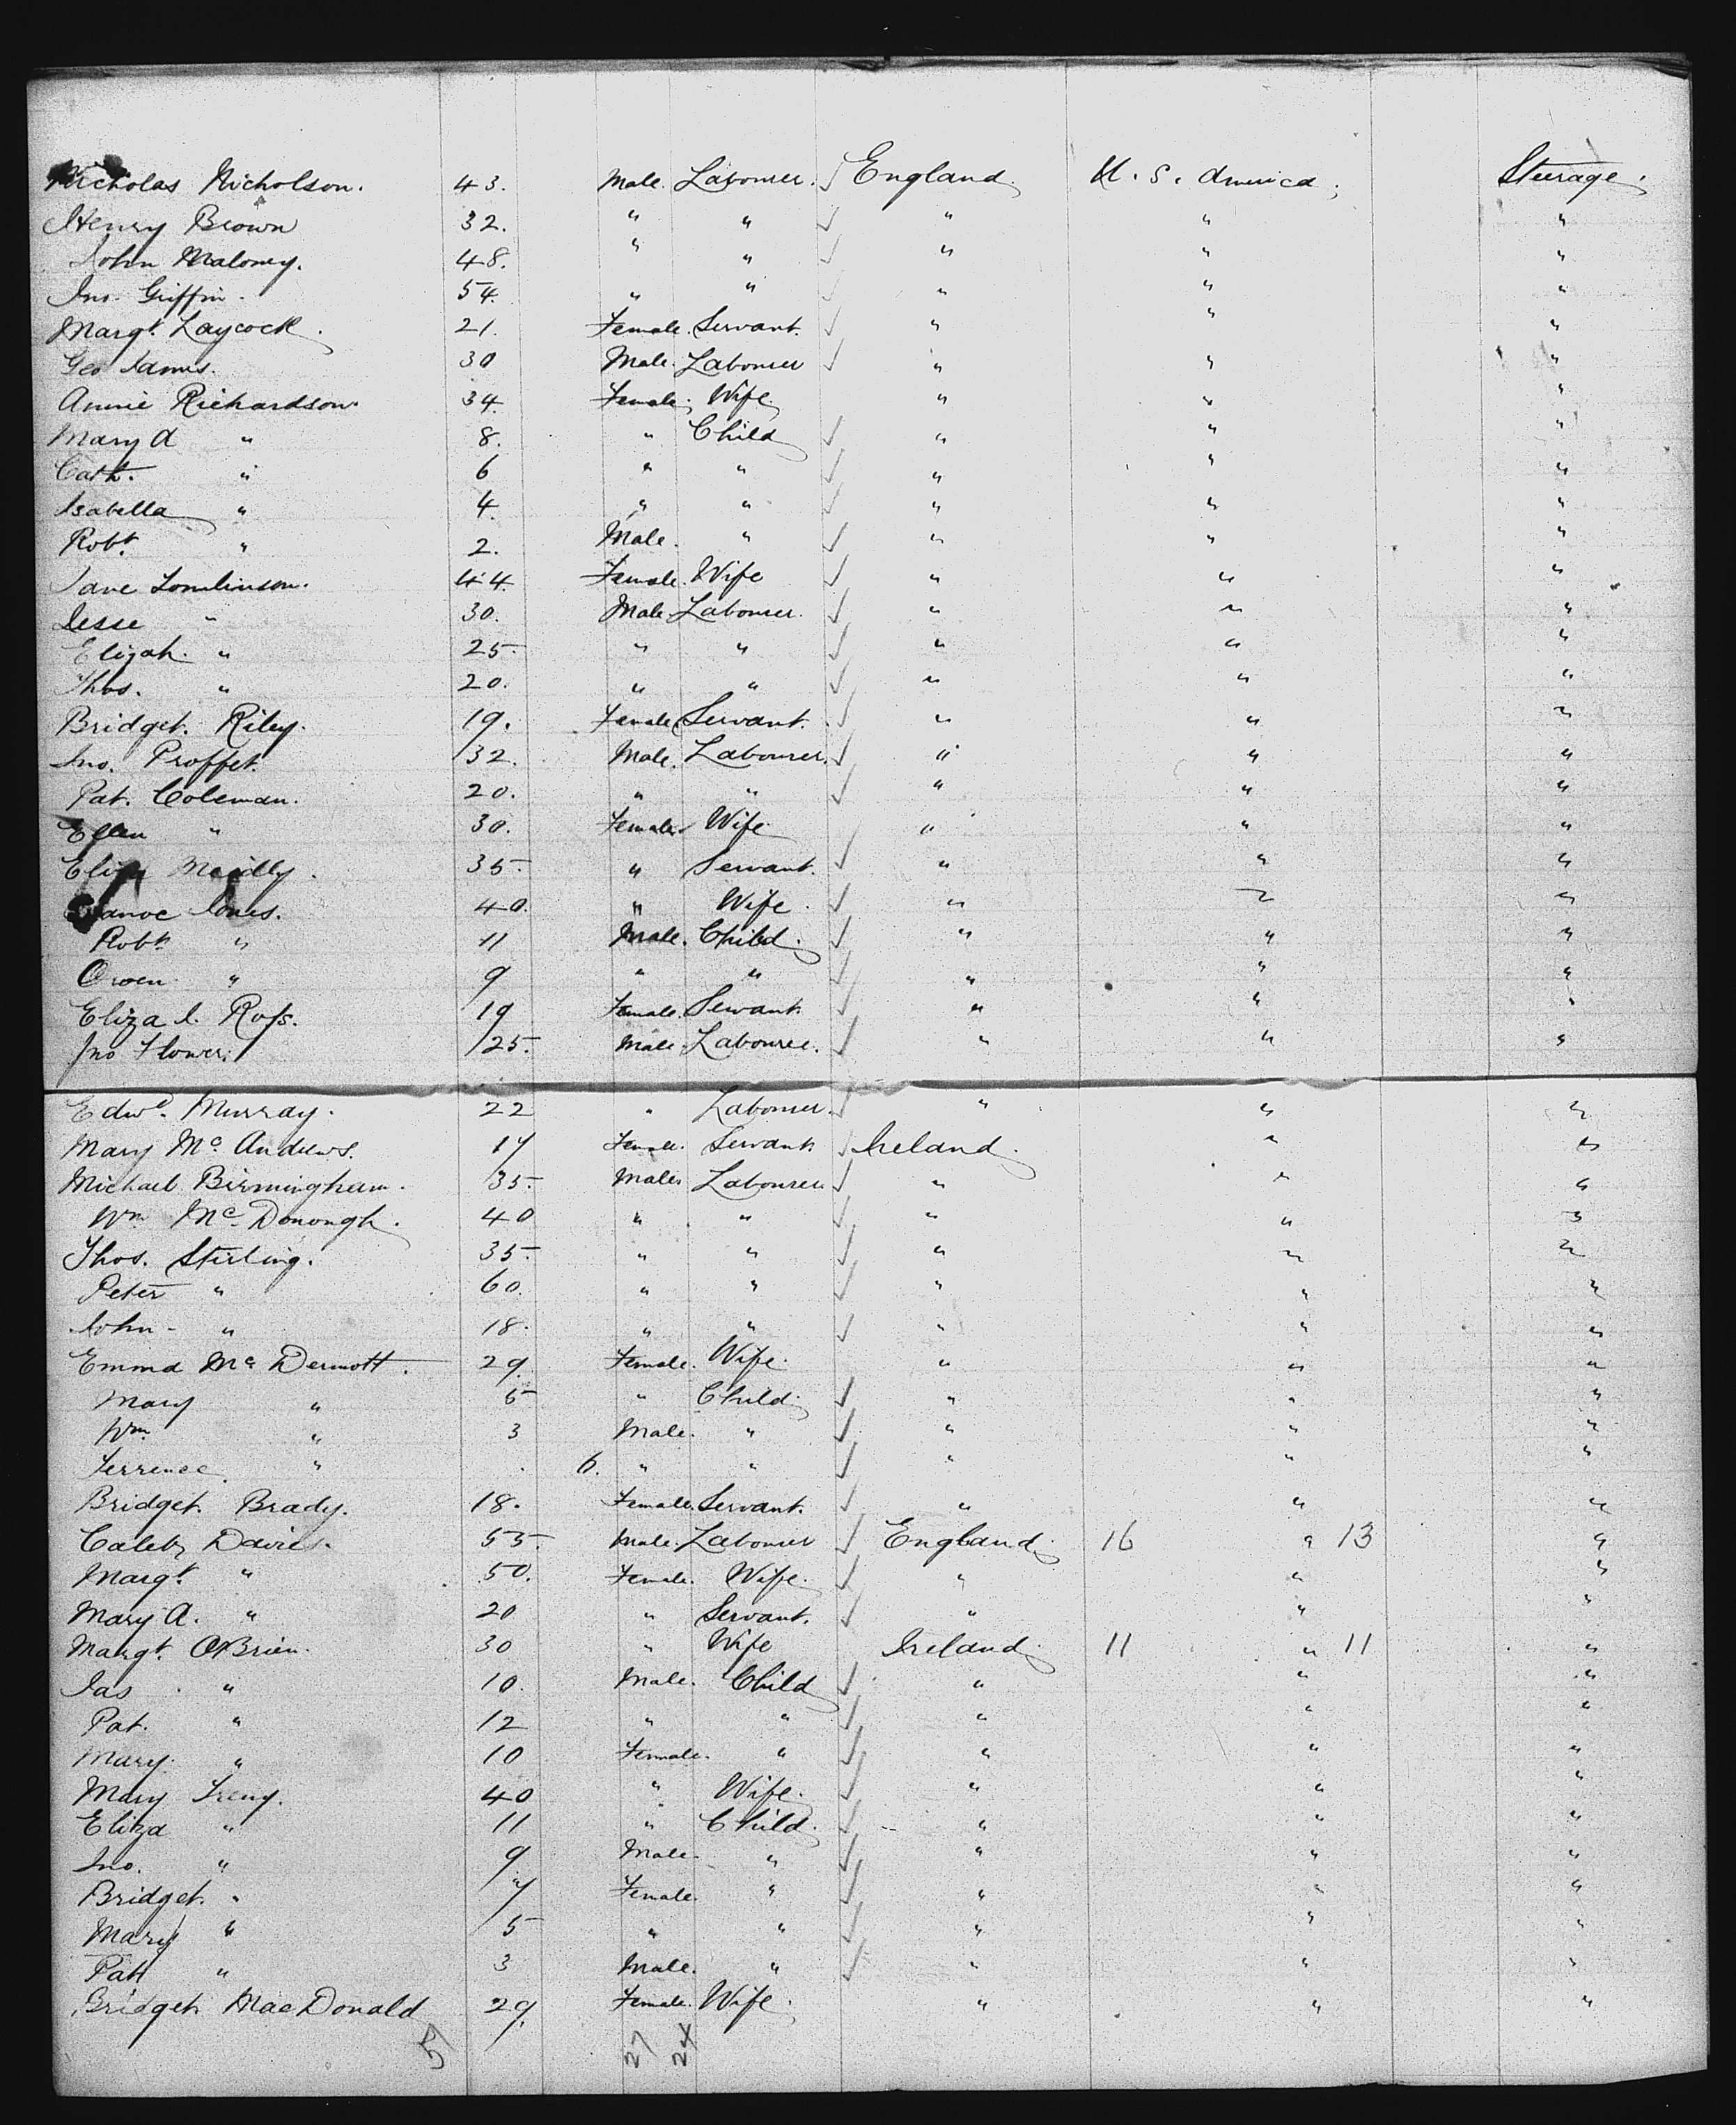 Nicholas Nicholson. 43. Male. Labourer. ✓ England. U. S. America; Steerage.
Henry Brown 32. " " ✓ " " "
John Maloney. 48. " " ✓ " " "
Jno. Griffin. 54. " " ✓ " " "
Margt. Laycock. 21. Female. Servant. ✓ " " "
Geo James. 30 Male. Labourer ✓ " " "
Annie Richardson. 34. Female. Wife. " " "
Mary A " 8. " Child ✓ " " "
Cath. " 6 " " ✓ " " "
Isabella " 4. " " ✓ " " "
Robt. " 2. Male. " ✓ " " "
Jane Tomlinson. 44. Female. Wife ✓ " " "
Jesse " 30. Male Labourer. ✓ " " "
Elijah. " 25. " " ✓ " " "
Thos. " 20. " " ✓ " " "
Bridget. Riley. 19. Female Servant. ✓ " " "
Jno. Proffet. 32. Male. Labourer. ✓ " " "
Pat. Coleman. 20. " " ✓ " " "
Ellen " 30. Female. Wife ✓ " " "
Eliza 35. " Servant. ✓ " " "
Jones. 40. " Wife. ✓ " " "
Robt. " 11 Male. Child. ✓ " " "
Owen " 9 " " ✓ " " "
Eliza J. Ross. 19 Female. Servant. ✓ " " "
Jno Flower. 25. Male. Labourer. ✓ " " "
Edwd. Murray. 22 " Labourer. ✓ " " "
Mary Mc Andrews. 17 Female. Servant. ✓ Ireland. " "
Michael Birmingham. 35. Male. Labourer. ✓ " " "
Wm Mc Donough. 40 " " ✓ " " "
Thos. Stirling. 35. " " ✓ " " "
Peter " 60. " " ✓ " " "
John " 18. " " ✓ " " "
Emma Mc Dermott. 29. Female. Wife. " " "
Mary " 5 " Child. ✓ " " "
Wm " 3 Male. " ✓ " " "
Terrence " 6. " " ✓ " " "
Bridget. Brady. 18. Female. Servant. ✓ " " "
Caleb Davies. 55. Male. Labourer ✓ England. 16 " 13 "
Margt. " 50. Female. Wife. ✓ " " "
Mary A. " 20 " Servant. ✓ " " "
Margt. O'Brien. 30 " Wife Ireland. 11 " 11 "
Jas " 10. Male. Child ✓ " " "
Pat. " 12 " " ✓ " " "
Mary. " 10 Female. " ✓ " " "
Mary 40 " Wife. ✓ " " "
Eliza " 11 " Child. ✓ " " "
Jno. " 9 Male. " ✓ " " "
Bridget. " 7 Female. " ✓ " " "
Mary " 5 " " ✓ " " "
Patt " 3 Male. " ✓ " " "
Bridget Mac Donald 29. Female. Wife. " " "
51 27 24